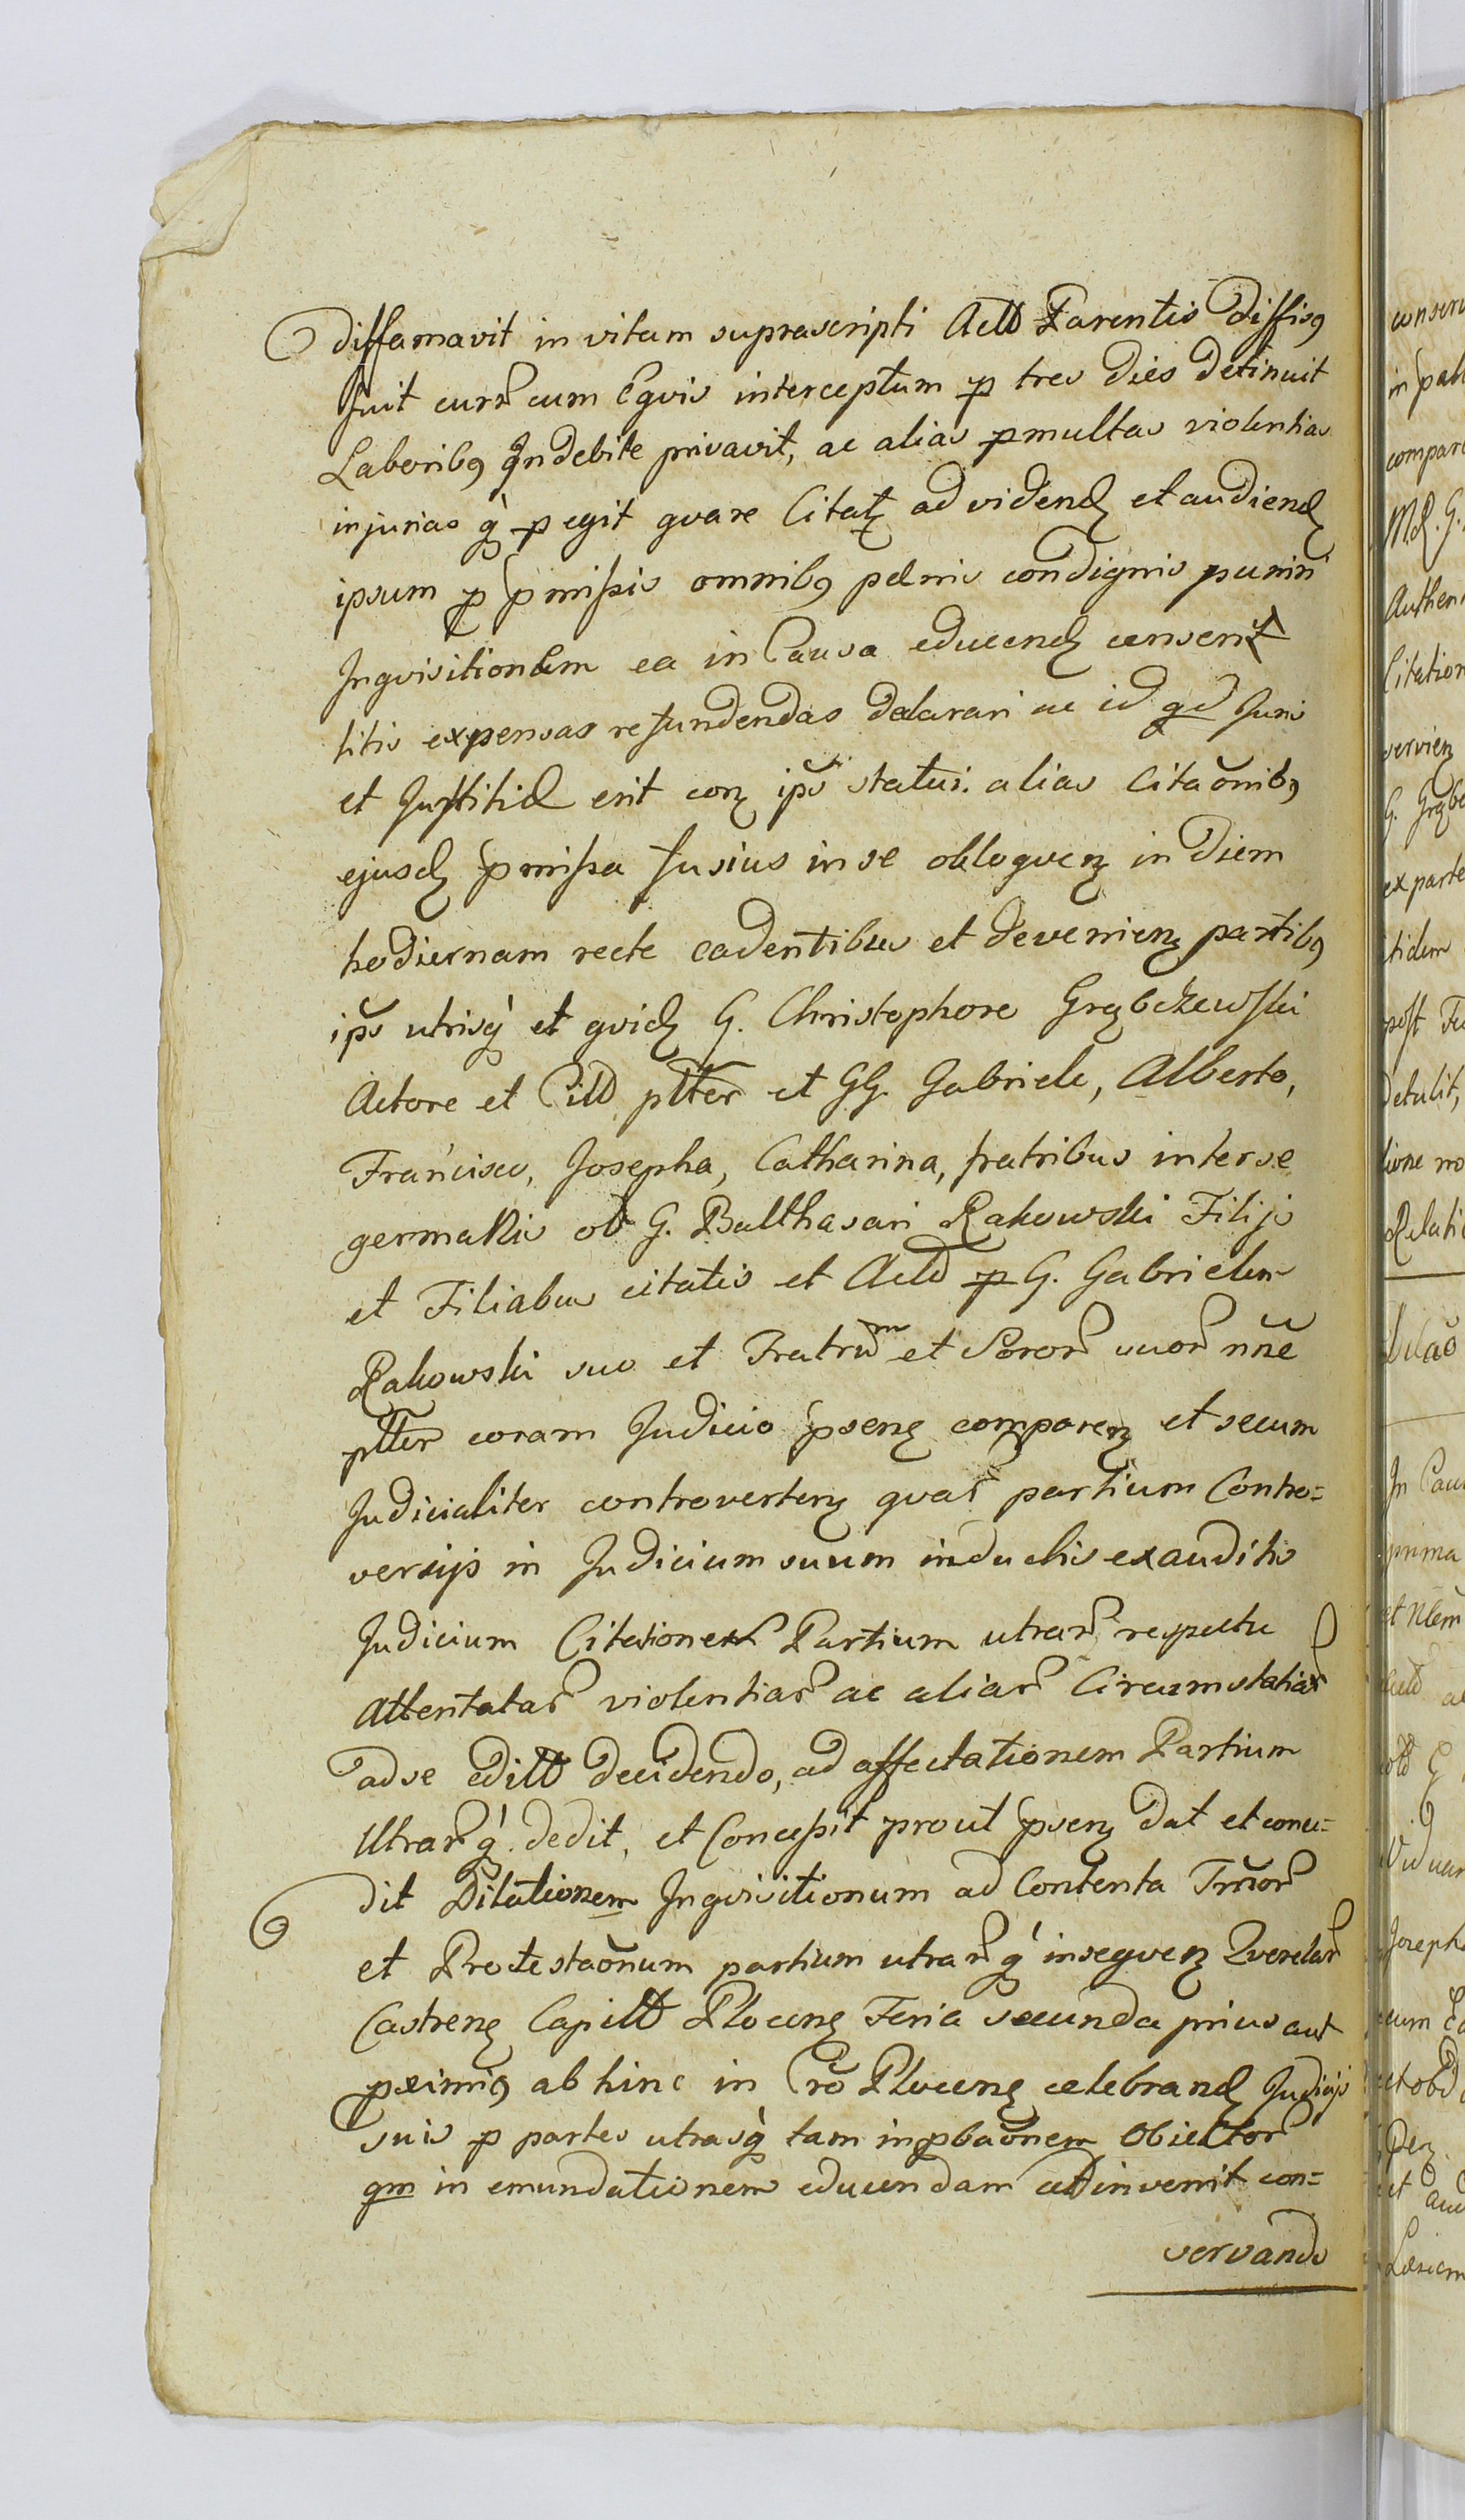 diffamavit in vitam suprascripti Actt Parentis diffisq
fuit curr cum Eqvis interceptum p tres dies detinuit
Laboribq Indebite privavit, ac alias pmultas violentias
injurias q p egit qvare Citatz ad videndz et audiendz
ipsum p pmissis omnibq pænis condignis puniri
Inqvisitionem ea in Causa educendz censeri
litis expensas refundendas declarari ac id qd Juris
et Justitiæ erit conz ips statui. alias Citaonibq
ejusdz pmissa fusius in se obloqvenz in diem
hodiernam recte cadentibus et devenienz partibq
ips utrisq et qvidz G. Christophoro Grąbczewski
Actore et Citt pltter et GG. Gabriele, Alberto,
Francisco, Josepha, Catharina, fratribus inter se
germanis ol G. Balthasari Rakowski Filijs
et Filiabus citatis et Actt p G. Gabrielem
Rakowski suo et Fratrum et Soror suor nne
pltter coram Judicio psenz comparenz et secum
Judicialiter controvertenz qvar partium Contro=
versijs in Judicium suum inductis exauditis
Judicium Citationes Partium utrar respectu
Attentatar violentiar ac aliar Circumstatiar
ad se editt decidendo, ad affectationem Partium
Utrarq dedit, et Concessit prout psenz dat et conce=
dit Dilationem Inqvisitionum ad Contenta Trmor
et Protestaonum partium utrarq inseqvenz Qverelar
Castrenz Capitt Plocenz Feria secunda prius aut
pximiq ab hinc in Cro Plocenz celebrandz Judicijs
suis p partes utrasq tam inpbaonem Obiector
qm in emundationem educendam ad invenit con=
servando